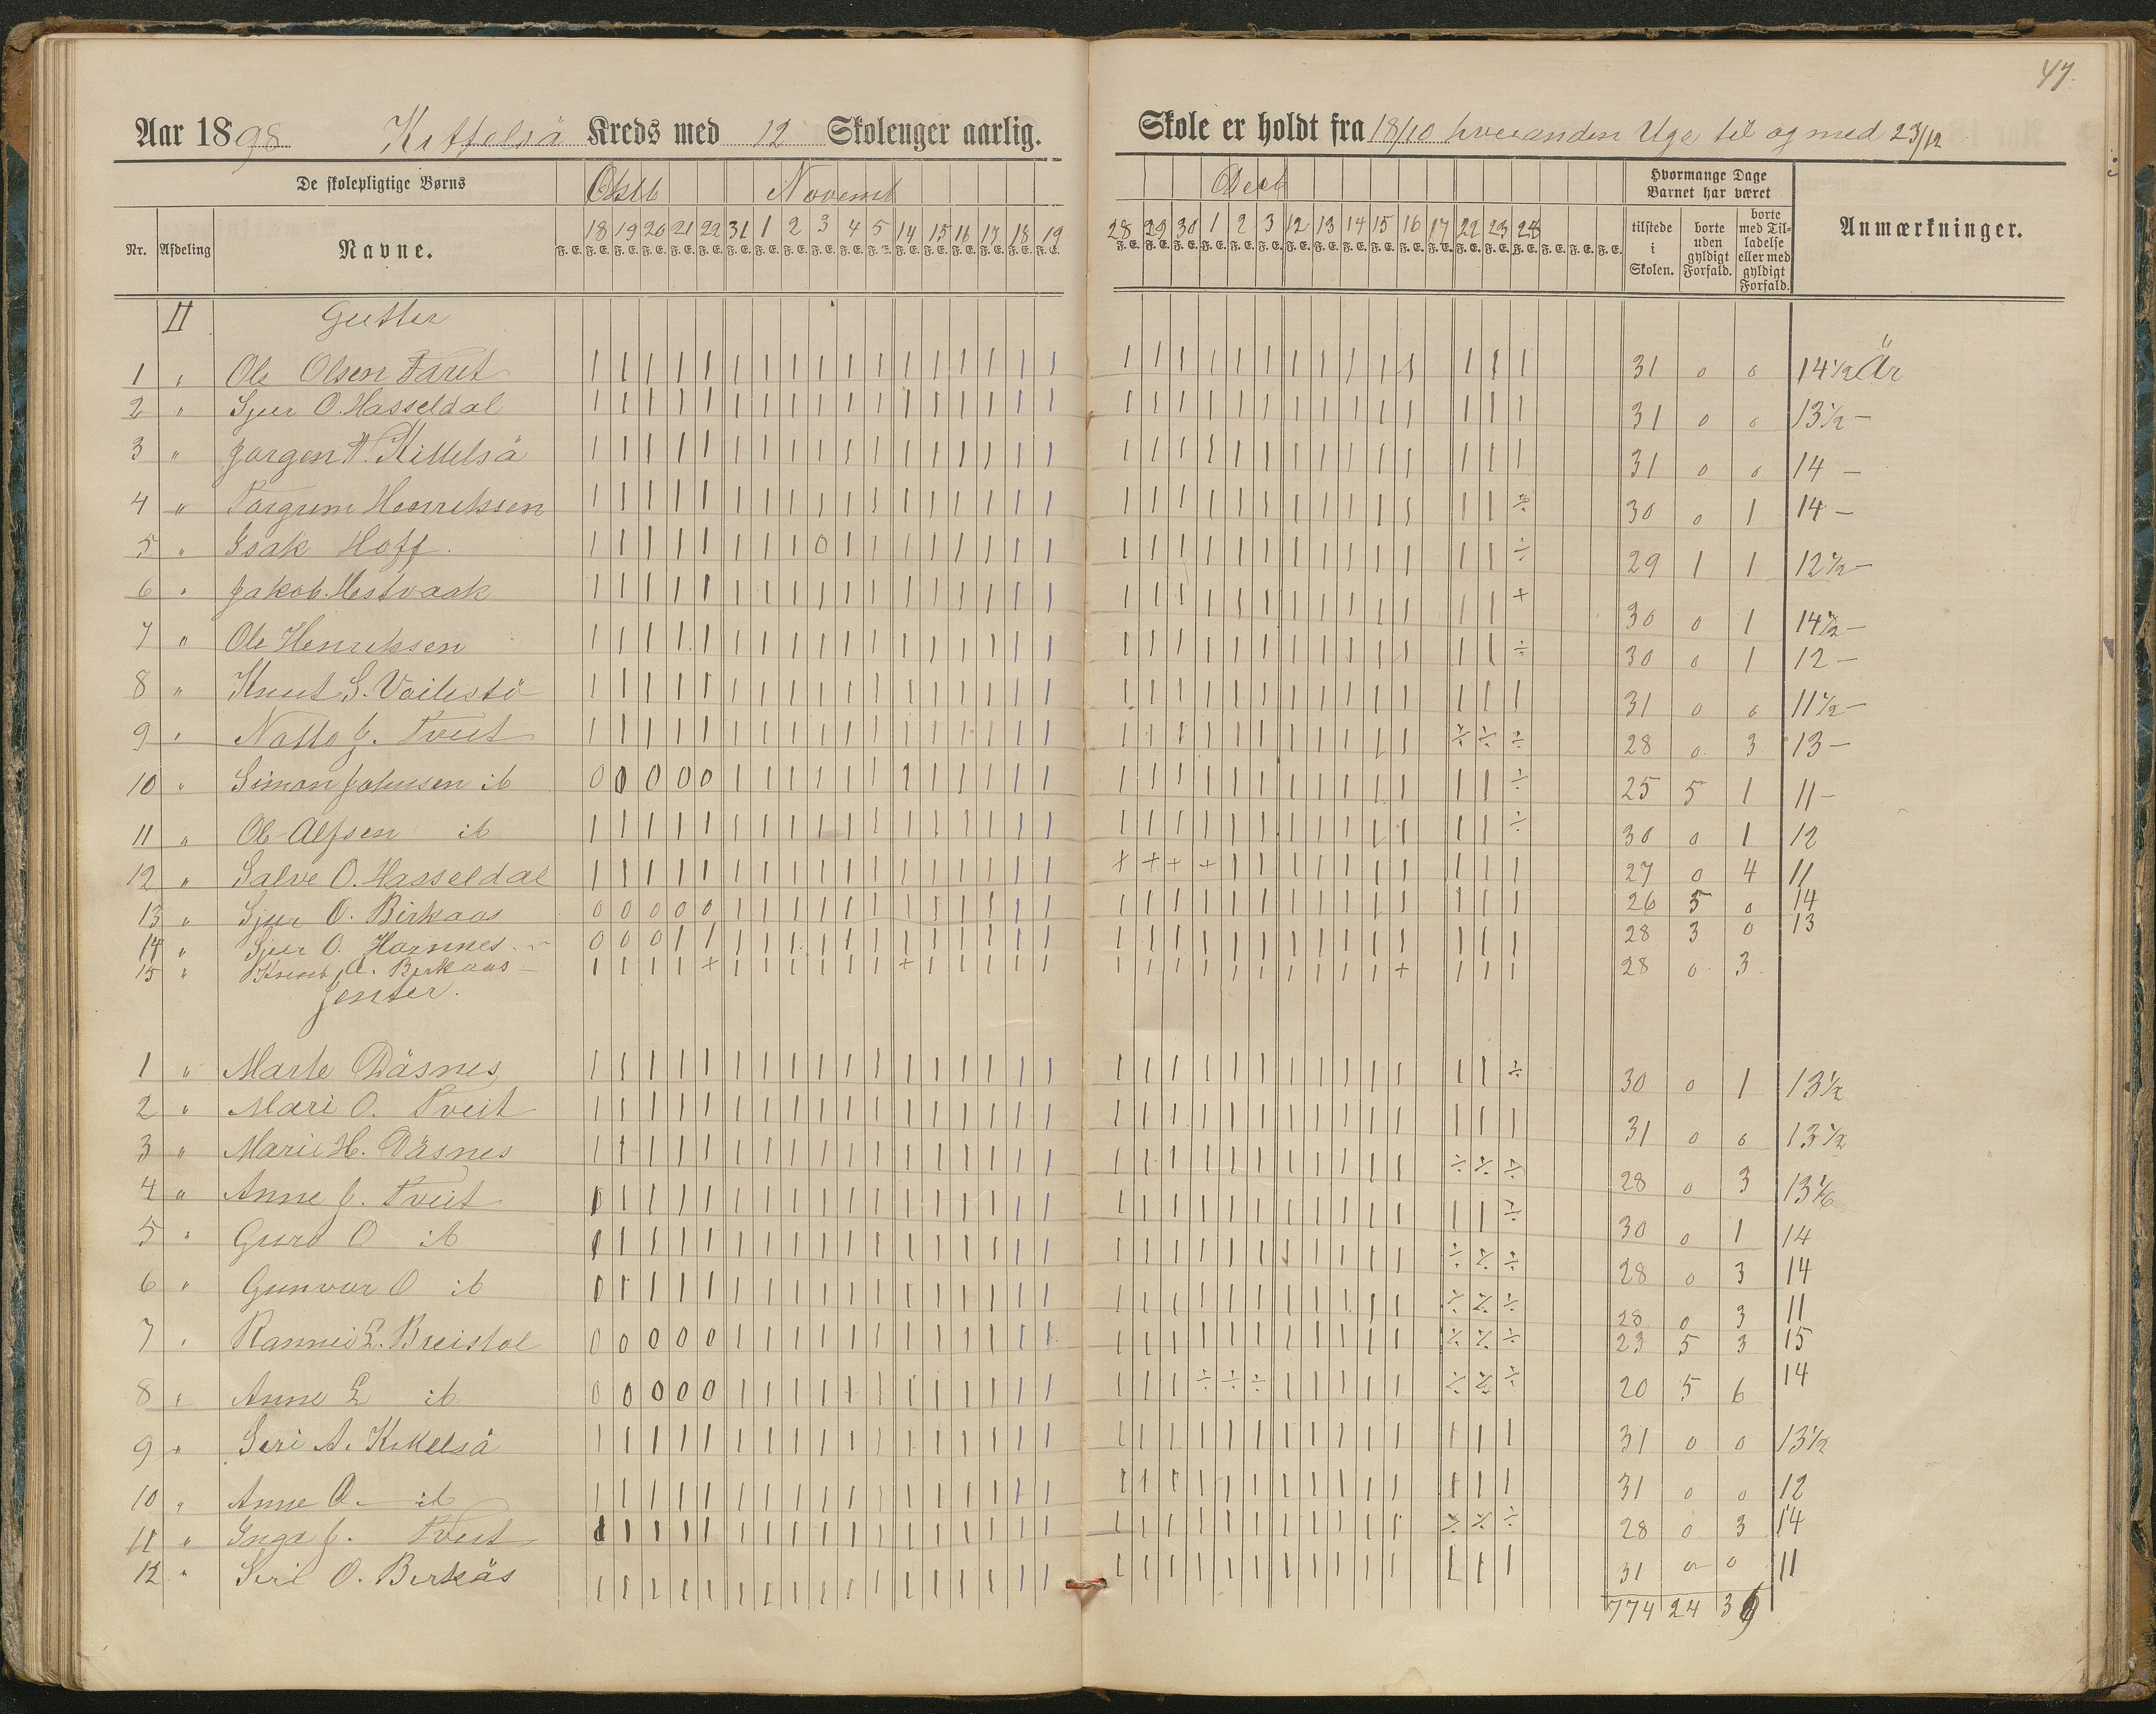 47.
Aar 1898 Kittelsä Kreds med 12 Skoleuger aarlig. Skole er holdt fra 18/10 hveranden Uge til og med 23/12
De skolepligtige Børns Oktb Novemb Decb Hvormange Dage Barnet har været
Nr. Afdeling Navne. 18 19 20 21 22 31 1 2 3 4 5 14 15 16 17 18 19 28 29 30 1 2 3 12 13 14 15 16 17 22 23 24 tilstede i Skolen. borte uden gyldigt Forfald. borte med Tilladelse eller med gyldigt Forfald. Anmærkninger.
F. E. F. E. F. E. F. E. F. E. F. E. F. E. F. E. F. E. F. E. F. E. F. E. F. E. F. E. F. E. F. E. F. E. F. E.
II Gutter
1 " Ole Olsen Taret 31 0 0 14 1/2 År
2 " Sjur O. Hasseldal 31 0 0 13 1/2 —
3 " Jørgen A. Kittelsä 31 0 0 14 —
4 " Torgrim Henriksen 30 0 1 14 —
5 " Isak Hoff. 29 1 1 12 1/2 —
6 " Jakob Hestvaak 30 0 1 14 1/2 —
7 " Ole Henriksen 30 0 1 12 —
8 " Knut S. 31 0 0 11 1/2 —
9 " J. Tveit 28 0 3 13 —
10 " Simon Johnsen ib 25 5 1 11 —
11 " Ole Alfsen ib 30 0 1 12
12 " Salve O. Hasseldal 27 0 4 11
13 " Sjur O. Birkaas 26 5 0 14
14 " Sjur O. 28 3 0 13
15 " Knut A. Birkaas — 28 0 3
Jenter.
1 " Marte Däsnes 30 0 1 13 1/2
2 " Mari O. Tveit 31 0 0 13 1/2
3 " Marie H. Däsnes 28 0 3
4 " Anne J. Tveit 30 0 1 14
5 " Guro O ib 28 0 3 14
6 " Gunvor O ib 28 0 3 11
7 " L. Breistøl 23 5 3 15
8 " Anne L ib 20 5 6 14
9 " Siri A. Kittelsä 31 0 0 13 1/2
10 " Anne O. ib 31 0 0 12
11 " Inga J. Tveit 28 0 3 14
12 " Siri O. Birkäs 31 0 0 11
774 24 39